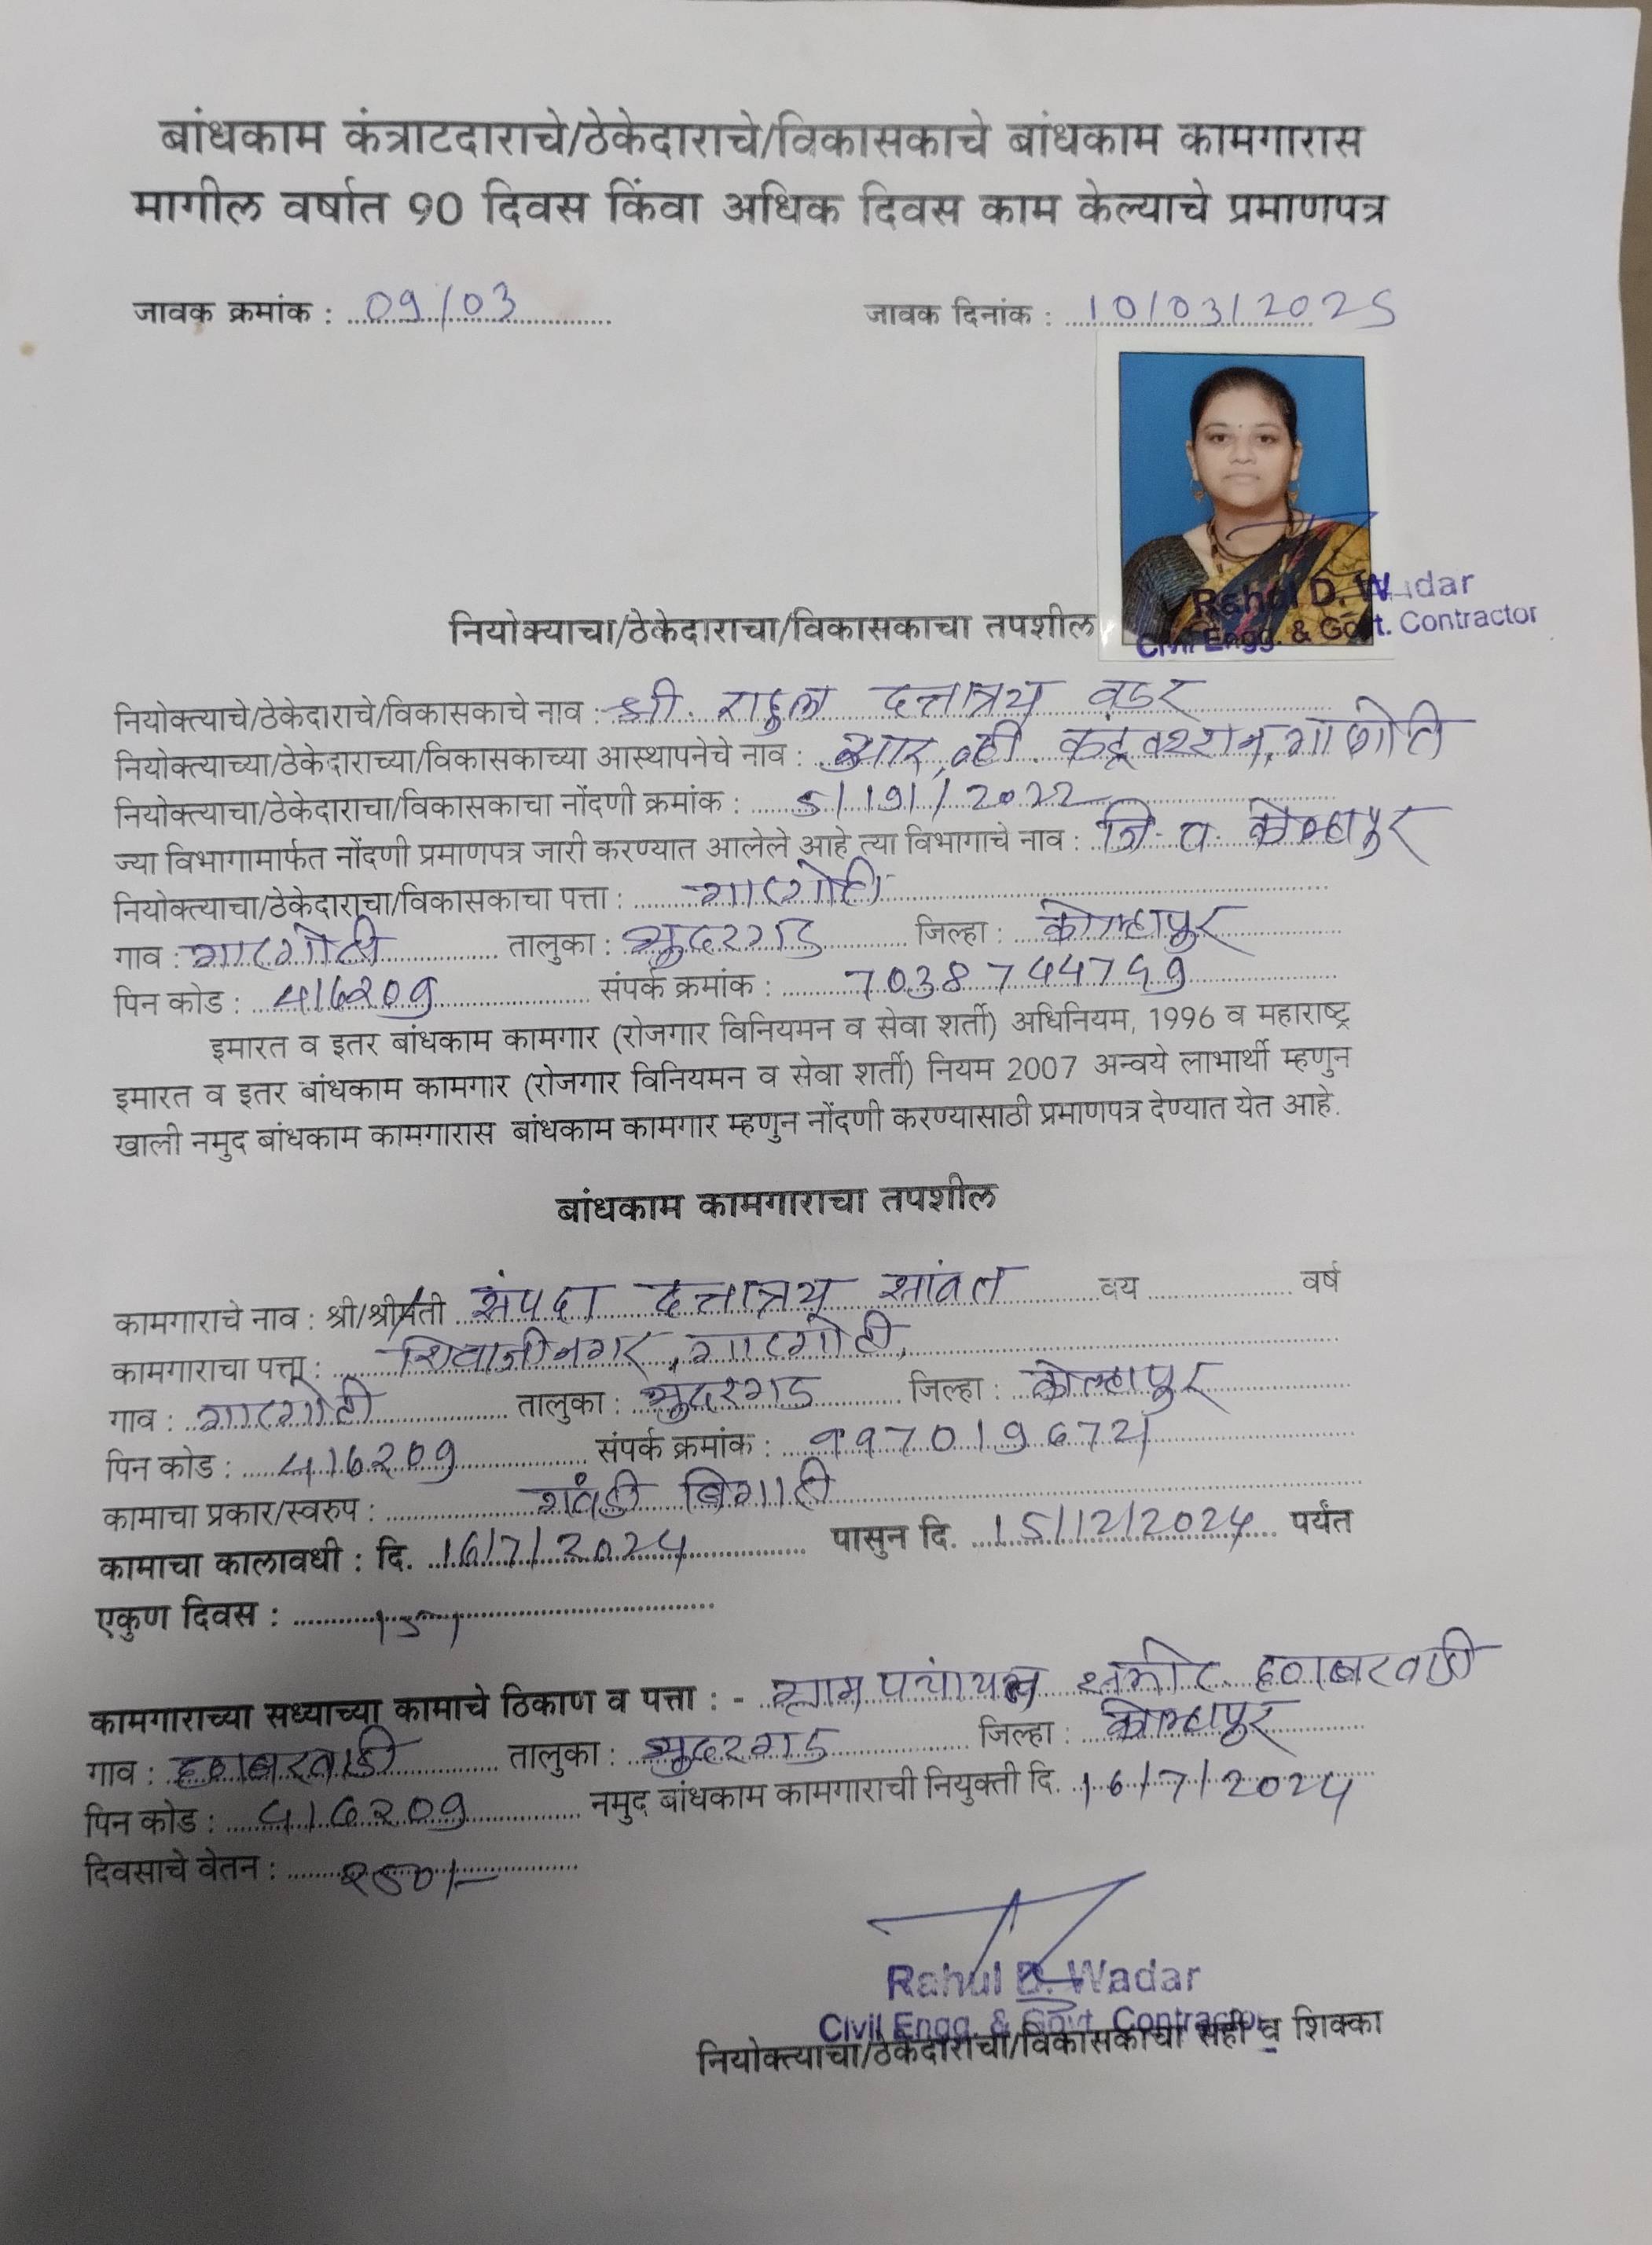 बांधकाम कंत्राटदाराचे/ठेकेदाराचे/विकासकाचे बांधकाम कामगारास
मागील वर्षात 90 दिवस किंवा अधिक दिवस काम केल्याचे प्रमाणपत्र
जावक क्रमांक : 09/03 जावक दिनांक : 10/03/2025
Rahul D. Wadar
Civil Engg. & Govt. Contractor
नियोक्याचा/ठेकेदाराचा/विकासकाचा तपशील
नियोक्त्याचे/ठेकेदाराचे/विकासकाचे नाव : श्री. राहुल दत्तात्रय वडर
नियोक्त्याच्या/ठेकेदाराच्या/विकासकाच्या आस्थापनेचे नाव : आर. व्ही. गारगोटी
नियोक्त्याचा/ठेकेदाराचा/विकासकाचा नोंदणी क्रमांक : 2022
ज्या विभागामार्फत नोंदणी प्रमाणपत्र जारी करण्यात आलेले आहे त्या विभागाचे नाव : जि. प. कोल्हापूर
नियोक्त्याचा/ठेकेदाराचा/विकासकाचा पत्ता : गारगोटी
गाव : गारगोटी तालुका : भुदरगड जिल्हा : कोल्हापूर
पिन कोड : 416209 संपर्क क्रमांक :
इमारत व इतर बांधकाम कामगार (रोजगार विनियमन व सेवा शर्ती) अधिनियम, 1996 व महाराष्ट्र
इमारत व इतर बांधकाम कामगार (रोजगार विनियमन व सेवा शर्ती) नियम 2007 अन्वये लाभार्थी म्हणुन
खाली नमुद बांधकाम कामगारास बांधकाम कामगार म्हणुन नोंदणी करण्यासाठी प्रमाणपत्र देण्यात येत आहे.
बांधकाम कामगाराचा तपशील
कामगाराचे नाव : श्री/श्रीमती संपदा दत्तात्रय सावंत वय वर्ष
कामगाराचा पत्ता : शिवाजीनगर, गारगोटी,
गाव : गारगोटी तालुका : भुदरगड जिल्हा : कोल्हापूर
पिन कोड : 416209 संपर्क क्रमांक : 9970196721
कामाचा प्रकार/स्वरुप : गवंडी बिगारी
कामाचा कालावधी : दि. 16/7/2024 पासुन दि. 15/12/2024 पर्यंत
एकुण दिवस : 151
कामगाराच्या सध्याच्या कामाचे ठिकाण व पत्ता : - ग्राम पंचायत
गाव : तालुका : भुदरगड जिल्हा : कोल्हापूर
पिन कोड : 416209 नमुद बांधकाम कामगाराची नियुक्ती दि. 16/7/2024
दिवसाचे वेतन :
Rahul D. Wadar
Civil Engg. & Govt. Contractor
नियोक्त्याचा/ठेकेदाराचा/विकासकाचा सही व शिक्का